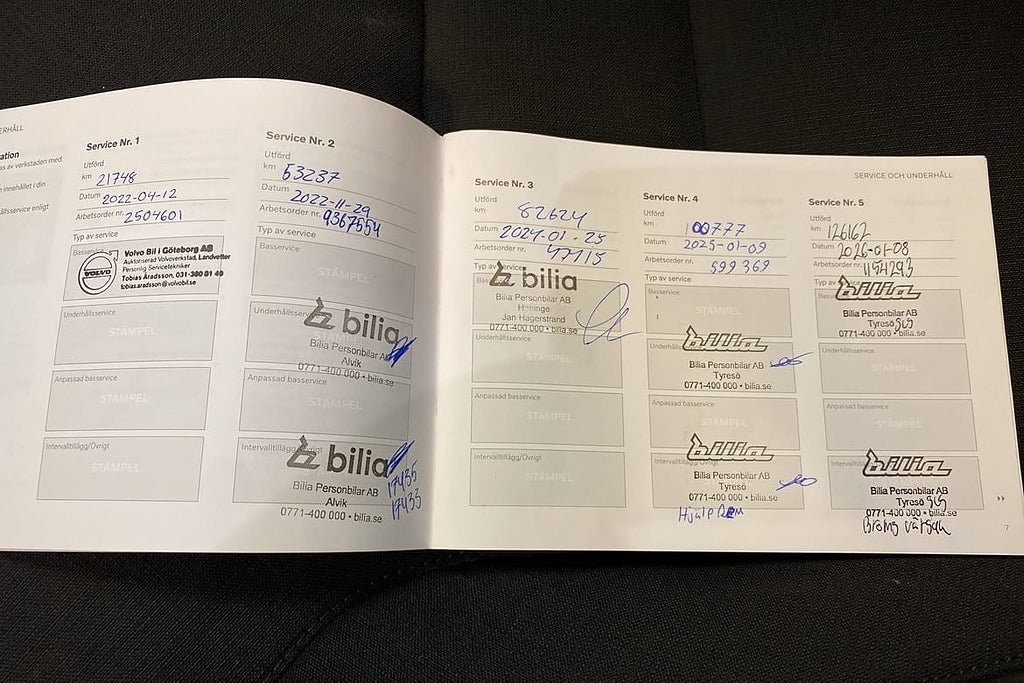 ERHÅLL
ation
as av verkstaden med
innehållet i din
ållsservice enligt
Service Nr. 1
Utförd
km 21748
Datum 2022-04-12
Arbetsorder nr. 2504601
Typ av service
Basservice
VOLVO
Volvo Bil i Göteborg AB
Auktoriserad Volvoverkstad, Landvetter
Personlig Servicetekniker
Tobias Aradsson, 031-380 81 40
tobias.aradsson@volvobil.se
Underhållsservice
STÄMPEL
Anpassad basservice
STÄMPEL
Intervalltillägg/Övrigt
STÄMPEL
Service Nr. 2
Utförd
km 53237
Datum 2022-11-29
Arbetsorder nr. 9367554
Typ av service
Basservice
STÄMPEL
Underhållsservice
bilia
Bilia Personbilar AB
Alvik
0771-400 000 • bilia.se
Anpassad basservice
STÄMPEL
Intervalltillägg/Övrigt
bilia
Bilia Personbilar AB
Alvik
0771-400 000 • bilia.se
17435
17433
Service Nr. 3
Utförd
km 82624
Datum 2024-01-25
Arbetsorder nr. 47115
Typ av service
bilia
Bilia Personbilar AB
Haninge
Jan Hagerstrand
0771-400 000 • bilia.se
Underhållsservice
STÄMPEL
Anpassad basservice
STÄMPEL
Intervalltillägg/Övrigt
STÄMPEL
Service Nr. 4
Utförd
km 100777
Datum 2025-01-09
Arbetsorder nr. 599369
Typ av service
Basservice
STÄMPEL
Underhållsservice
bilia
Bilia Personbilar AB
Tyresö
0771-400 000 • bilia.se
Anpassad basservice
STÄMPEL
bilia
Bilia Personbilar AB
Tyresö
0771-400 000 • bilia.se
Hjälp Rem
SERVICE OCH UNDERHÅLL
Service Nr. 5
Utförd
km 126162
Datum 2026-01-08
Arbetsorder nr. 1154293
Typ av
Basservice
bilia
Bilia Personbilar AB
Tyresö
0771-400 000 • bilia.se
Underhållsservice
STÄMPEL
Anpassad basservice
STÄMPEL
bilia
Bilia Personbilar AB
Tyresö
0771-400 000 • bilia.se
Broms vätska
7